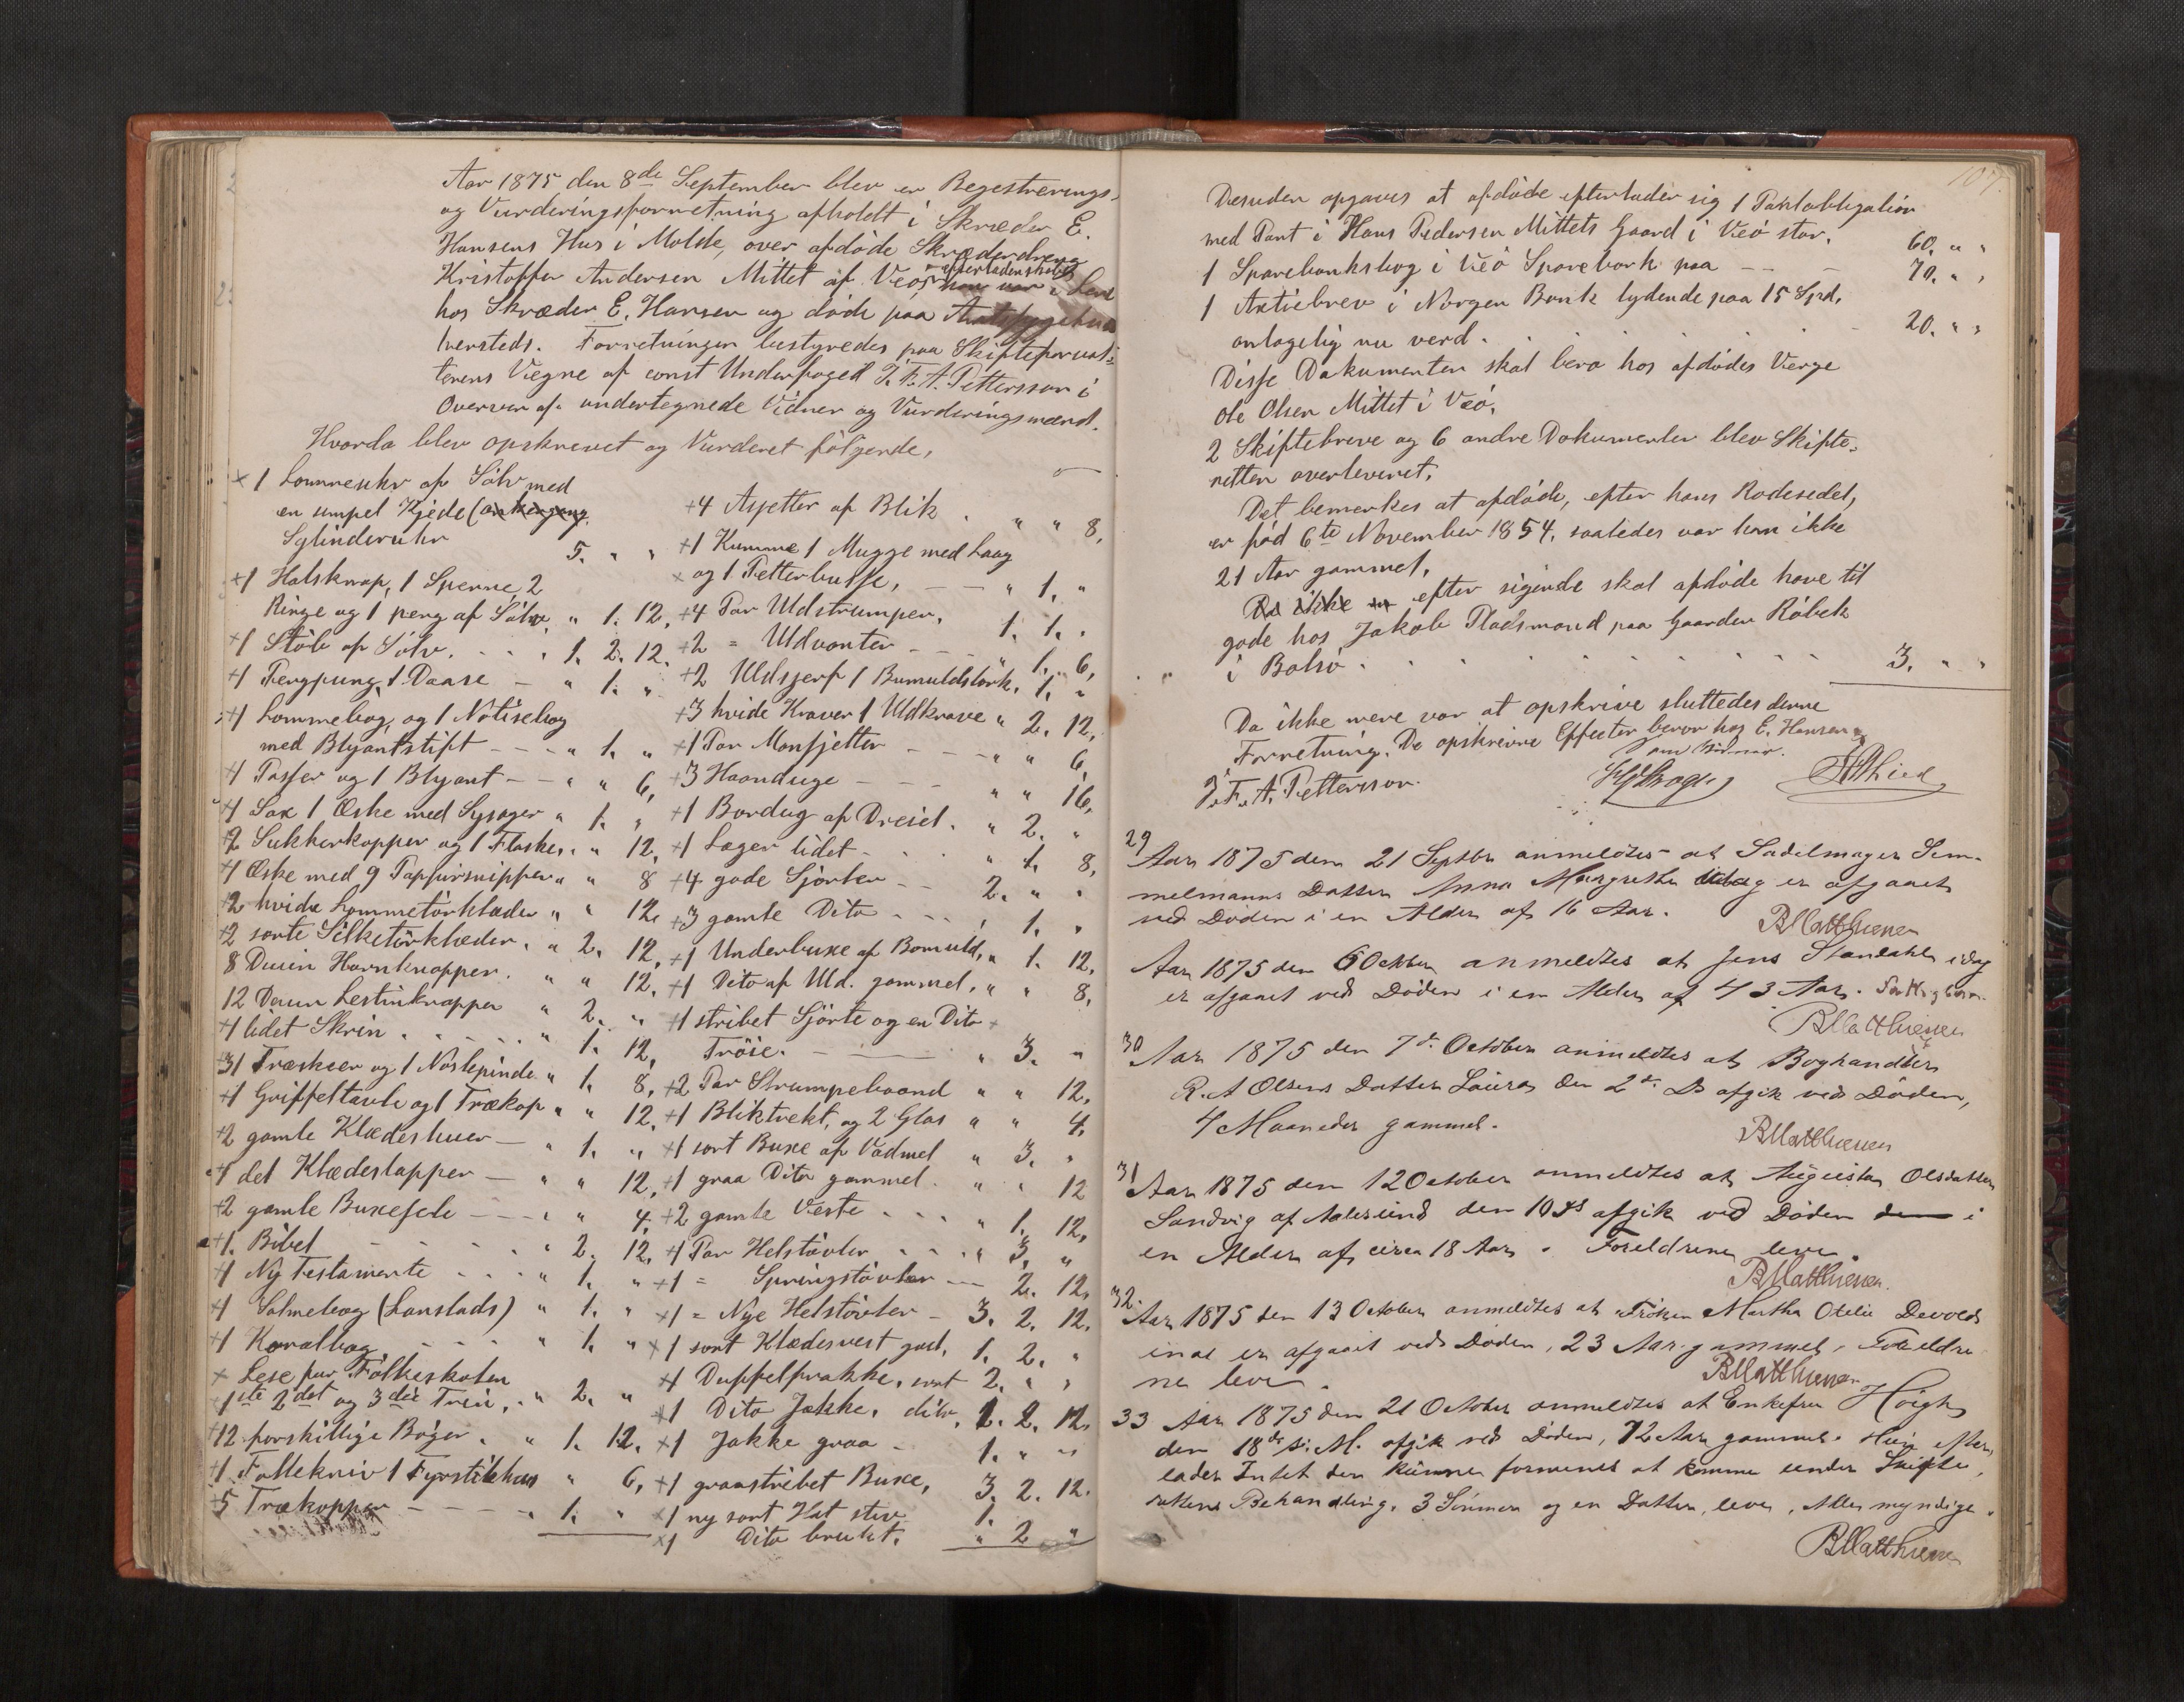 Aar 1875 den 8de September blev en Regestrerings-
og Vurderingsforretning afholdt i Skræder E.
Hansens Hus i Molde, over afdøde Skræderdreng
efterladenskaber
Kristoffer Andersen Mittet af Veø, han var i Lære
hos Skræder E. Hansen og døde paa Amtssygehuset
hersteds. Forretningen bestyredes paa Skifteforval-
terens Vegne af const Underfoged J. F. A. Pettersson i
Overvær af undertegnede Vidner og Vurderingsmænd.
Hvorda blev opskrevet og Vurderet følgende,
+ 1 Lommeuhr af Sølv med
en simpel Kjede (ankergang
Sylinderuhr 5. " "
+1 Halsknap, 1 Sperne, 2
Ringe og 1 peng af Sølv, " 1. 12,
+1 Støb af Sølv. 1. 2. 12.
+1 Pengpung, 1 Daase " 1. "
+1 Lommebog og 1 Notisebog
med Blyantstift " 1. "
+1 Passer og 1 Blyant " " 6,
+1 Sax 1 Æske med Sysager " 1. "
+2 Sukkerkopper og 1 Flasker. " 12,
+1 Æske med 9 Pappirsnipper " " 8
+2 hvide Lommetørklæder " " 12,
+2 sorte Silketørklæder. " 2. 12,
8 Dusin Hornknapper. " " 12,
12 Dusin Lestinknapper " 2. "
+1 lidet Skrin " 1. 12,
+31 Træskeer og 1 Nøstepinde " 1. 8,
+1 Griffeltavle og 1 Trækop " " 12,
+2 gamle Klædeshuer " 1. "
+1 del Klædeslapper " " 12,
+2 gamle Buxesele " " 4,
+1. Bibel " 2. 12,
+1 Ny Testamente " 1. "
+1 Salmebog (Lanstads) " 1. "
+1 Koralbog " 1. "
+ Lese for Folkeskolen
+1ste 2det og 3die Trin, " 2. "
+12 forskillige Bøger. " 1. 12.
+1 Follekniv 1 Fyrstikhus " 6,
+5 Trækopper 1. "
+4 Asjetter af Blik " " 8,
+1 Kumme 1 Mugge med Laag
+ og 1 Petterbusse, " 1. "
+4 Par Uldstrumper, 1. 1. "
+2 = Uldvanter 1. 6,
+2 Uldsjerf 1 Bumuldstørk. 1. "
+3 hvide Kraver 1 Uldkrave " 2. 12,
+1 Par Mansjetter " " 6,
+3 Haanduge " " 16,
+1 Bordug af Dreiel. " 2. "
+1 Lager lidet " 1. 8,
+4 gode Sjorter 2. " "
+3 gamle Dito 1. "
+1 Underbuxe af Bomuld, " 1. 12,
+1 Dito af Uld. gammel. " " 8,
+1 stribet Sjorte og en Dito
Trøie. " 3. "
+2 Par Strumpebaand " " 12,
+1 Bliktrekt, og 2 Glas " " 4,
+1 sort Buxe af Vadmel " 3. "
+1 graa Dito gammel. " " 12
+2 gamle Veste " 1. 12,
+1 Par Helstøvler " 3, "
+1 = Springstøvler 2. 12,
+1 = Nye Helstøvler 3. 2. 12.
+1 sort Klædesvest god. 1. 2. "
+1 Duffelfrakke, sort 2. " "
+1 Dito Jakke, dito, 2. 2. 12,
+1 Jakke graa 1. " "
+1 graastribet Buxe, 3. 2. 12.
+1 ny sort Hat stiv 1.
+1 Dito brukt. " 2 "
107.
Desuden opgaves at afdøde efterlader sig 1 Pantobligation
med Pant i Hans Pedersen Mittets Gaard i Veø stor. 60. " "
1 Sparebanksbog i Veø Sparebank paa 70. " "
1 Aktiebrev i Norges Bank lydende paa 15 Spd.
antagelig nu verd. 20. " "
Disse Dokumenter skal bero hos afdødes Verge
Ole Olsen Mittet i Veø.
2 Skiftebreve og 6 andre Dokumenter blev Skifte-
retten overleveret.
Det bemerkes at afdøde, efter hans Rodesedel,
er fød 6te November 1854, saaledes var han ikke
21 Aar gammel.
Da ikke efter sigende skal afdøde have til
gode hos Jakob Pladsmand paa Gaarden Røbek
i Bolsø 3. " "
Da ikke mere var at opskrive sluttedes denne
Forretning. De opskrevne Effecter beror hos E. Hansen
som Vidner.
J. F. A. Pettersson.
29
Aar 1875 den 21 Septbr anmeldtes at Sadelmager Sem-
melmanns Datter Anna Margrethe idag er afgaaet
ved Døden i en Alder af 16 Aar.
BMatthiesen
Aar 1875 den 6 Octbr anmeldtes at Jens Stordahl idag
er afgaaet ved Døden i en Alder af 43 Aar.
BMatthiesen
30
Aar 1875 den 7de October anmeldtes at Boghandler
R. A Olsens Datter Laura den 2de Ds afgik ved Døden,
4 Maaneder gammel.
BMatthiesen
31
Aar 1875 den 12 October anmeldtes at Augusta Olsdatter
Sandvig af Aalesund den 10 Ds afgik ved Døden den i
en Alder af circa 18 Aar. Foreldrene lever.
BMatthiesen.
32.
Aar 1875 den 13 October anmeldtes at Frøken Martha Otelie Devold
inat er afgaaet ved Døden, 23 Aar gammel, Foreldre
ne lever.
BMatthiesen
33 Aar 1875 den 21 October anmeldtes at Enkefru Høigh
den 18de d. M. afgik ved Døden, 72 Aar gammel. Hun efter-
lader Intet der kunne formenes at komme under Skifte-
rettens Behandling. 3 Sønner og en Datter lever, Alle myndige.
BMatthiesen